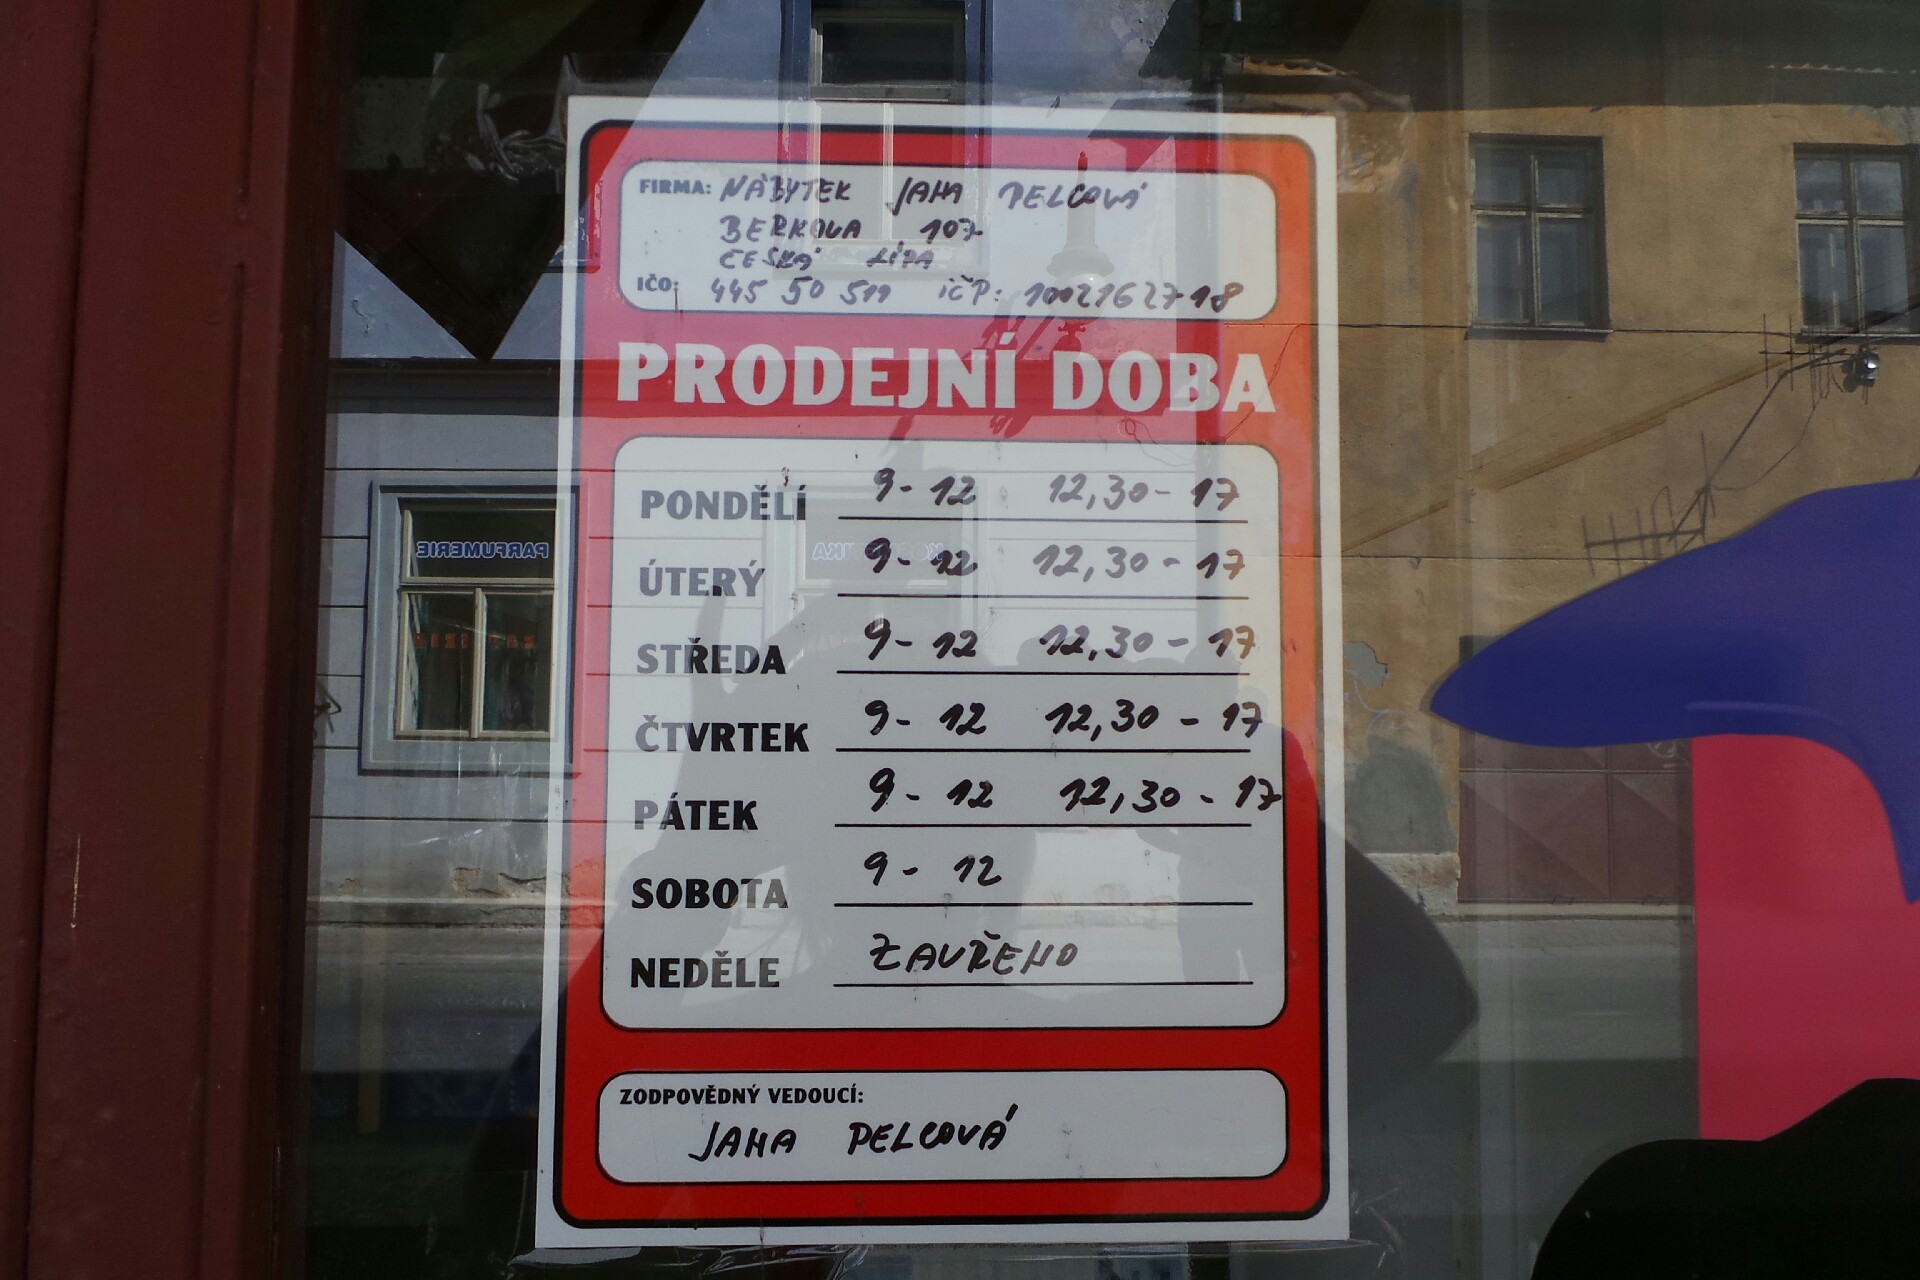 FIRMA: NÁBYTEK JANA PELCOVÁ
BERKOVA 107
ČESKÁ LÍPA
IČO: 445 50 511 IČP: 1002162718
PRODEJNÍ DOBA
PONDĚLÍ 9 - 12 12,30 - 17
ÚTERÝ 9 - 12 12,30 - 17
STŘEDA 9 - 12 12,30 - 17
ČTVRTEK 9 - 12 12,30 - 17
PÁTEK 9 - 12 12,30 - 17
SOBOTA 9 - 12
NEDĚLE ZAVŘENO
ZODPOVĚDNÝ VEDOUCÍ:
JANA PELCOVÁ
PARFUMERIE